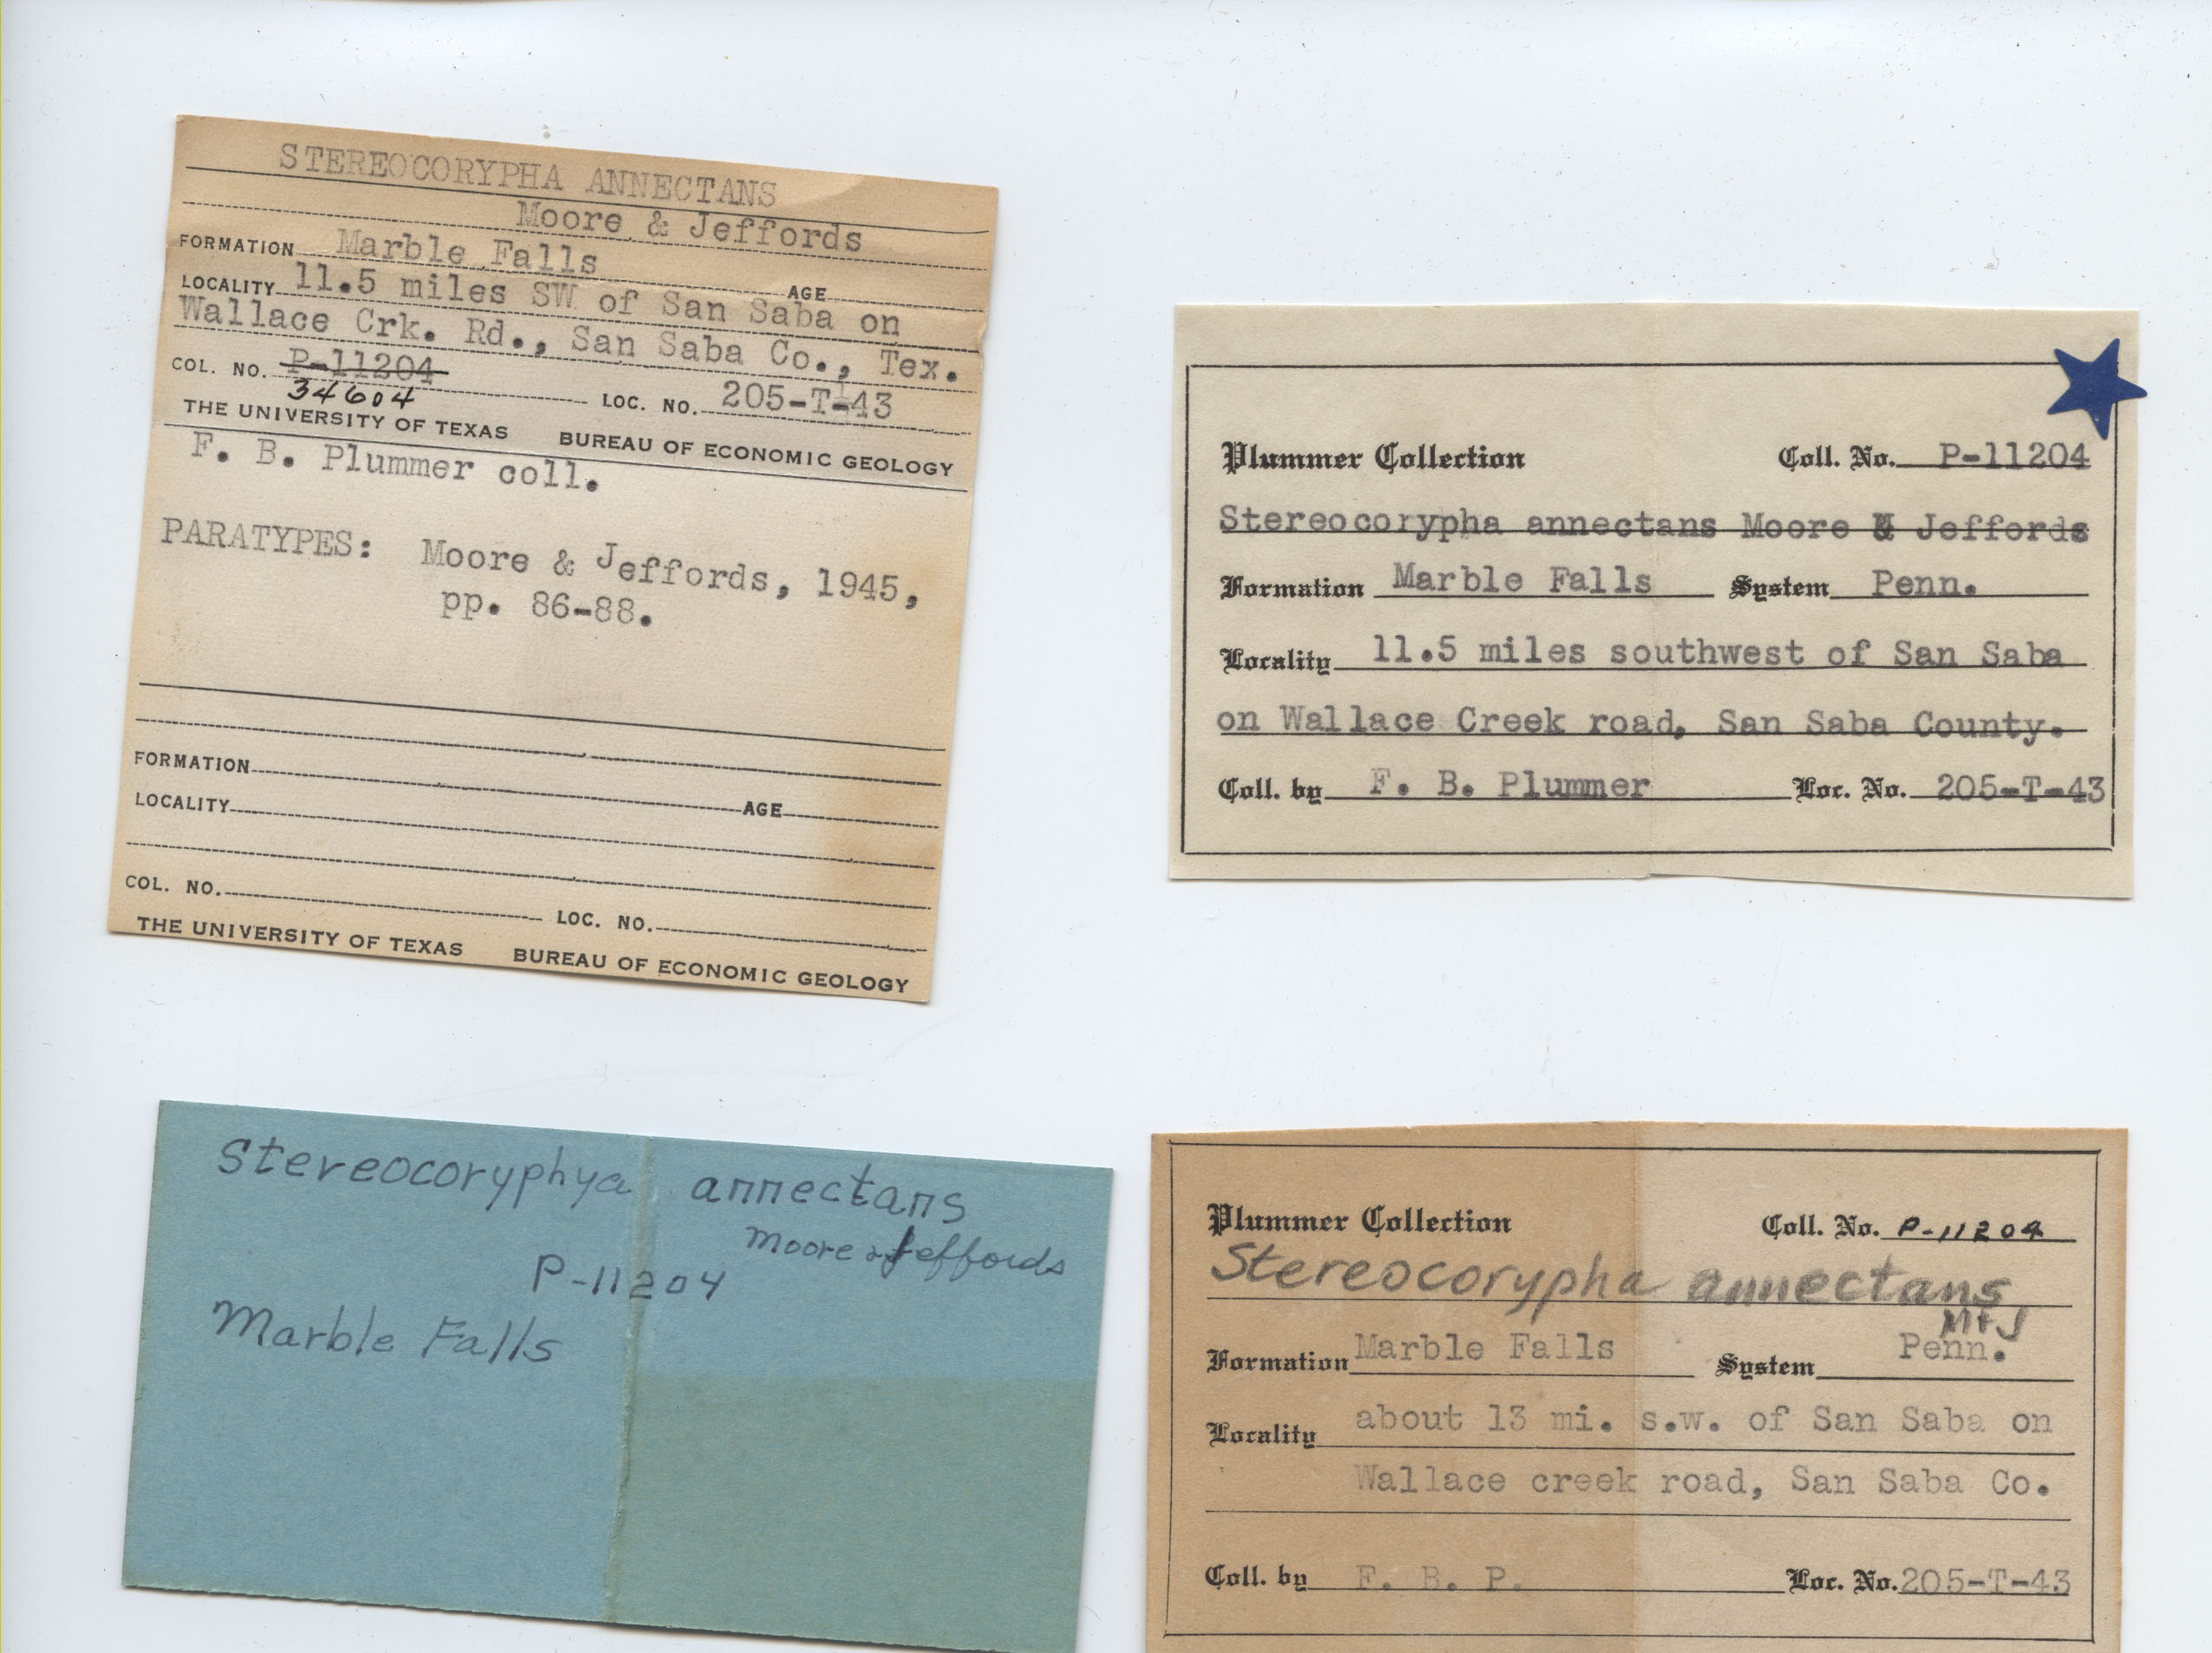 STEREOCORYPHA ANNECTANS
Moore & Jeffords
FORMATION Marble Falls
LOCALITY 11.5 miles SW of San Saba on AGE
Wallace Crk. Rd., San Saba Co., Tex.
COL. NO. P-11204 LOC. NO. 205-T-43
34604
THE UNIVERSITY OF TEXAS BUREAU OF ECONOMIC GEOLOGY
F. B. Plummer coll.
PARATYPES: Moore & Jeffords, 1945,
pp. 86-88.
FORMATION
LOCALITY AGE
COL. NO. LOC. NO.
THE UNIVERSITY OF TEXAS BUREAU OF ECONOMIC GEOLOGY
Plummer Collection Coll. No. P-11204
Stereocorypha annectans Moore & Jeffords
Formation Marble Falls System Penn.
Locality 11.5 miles southwest of San Saba
on Wallace Creek road, San Saba County.
Coll. by F. B. Plummer Loc. No. 205-T-43
Stereocoryphya annectans
Moore & Jeffords
P-11204
Marble Falls
Plummer Collection Coll. No. P-11204
Stereocorypha annectans
M+J
Formation Marble Falls System Penn.
Locality about 13 mi. s.w. of San Saba on
Wallace creek road, San Saba Co.
Coll. by F. B. P. Loc. No. 205-T-43